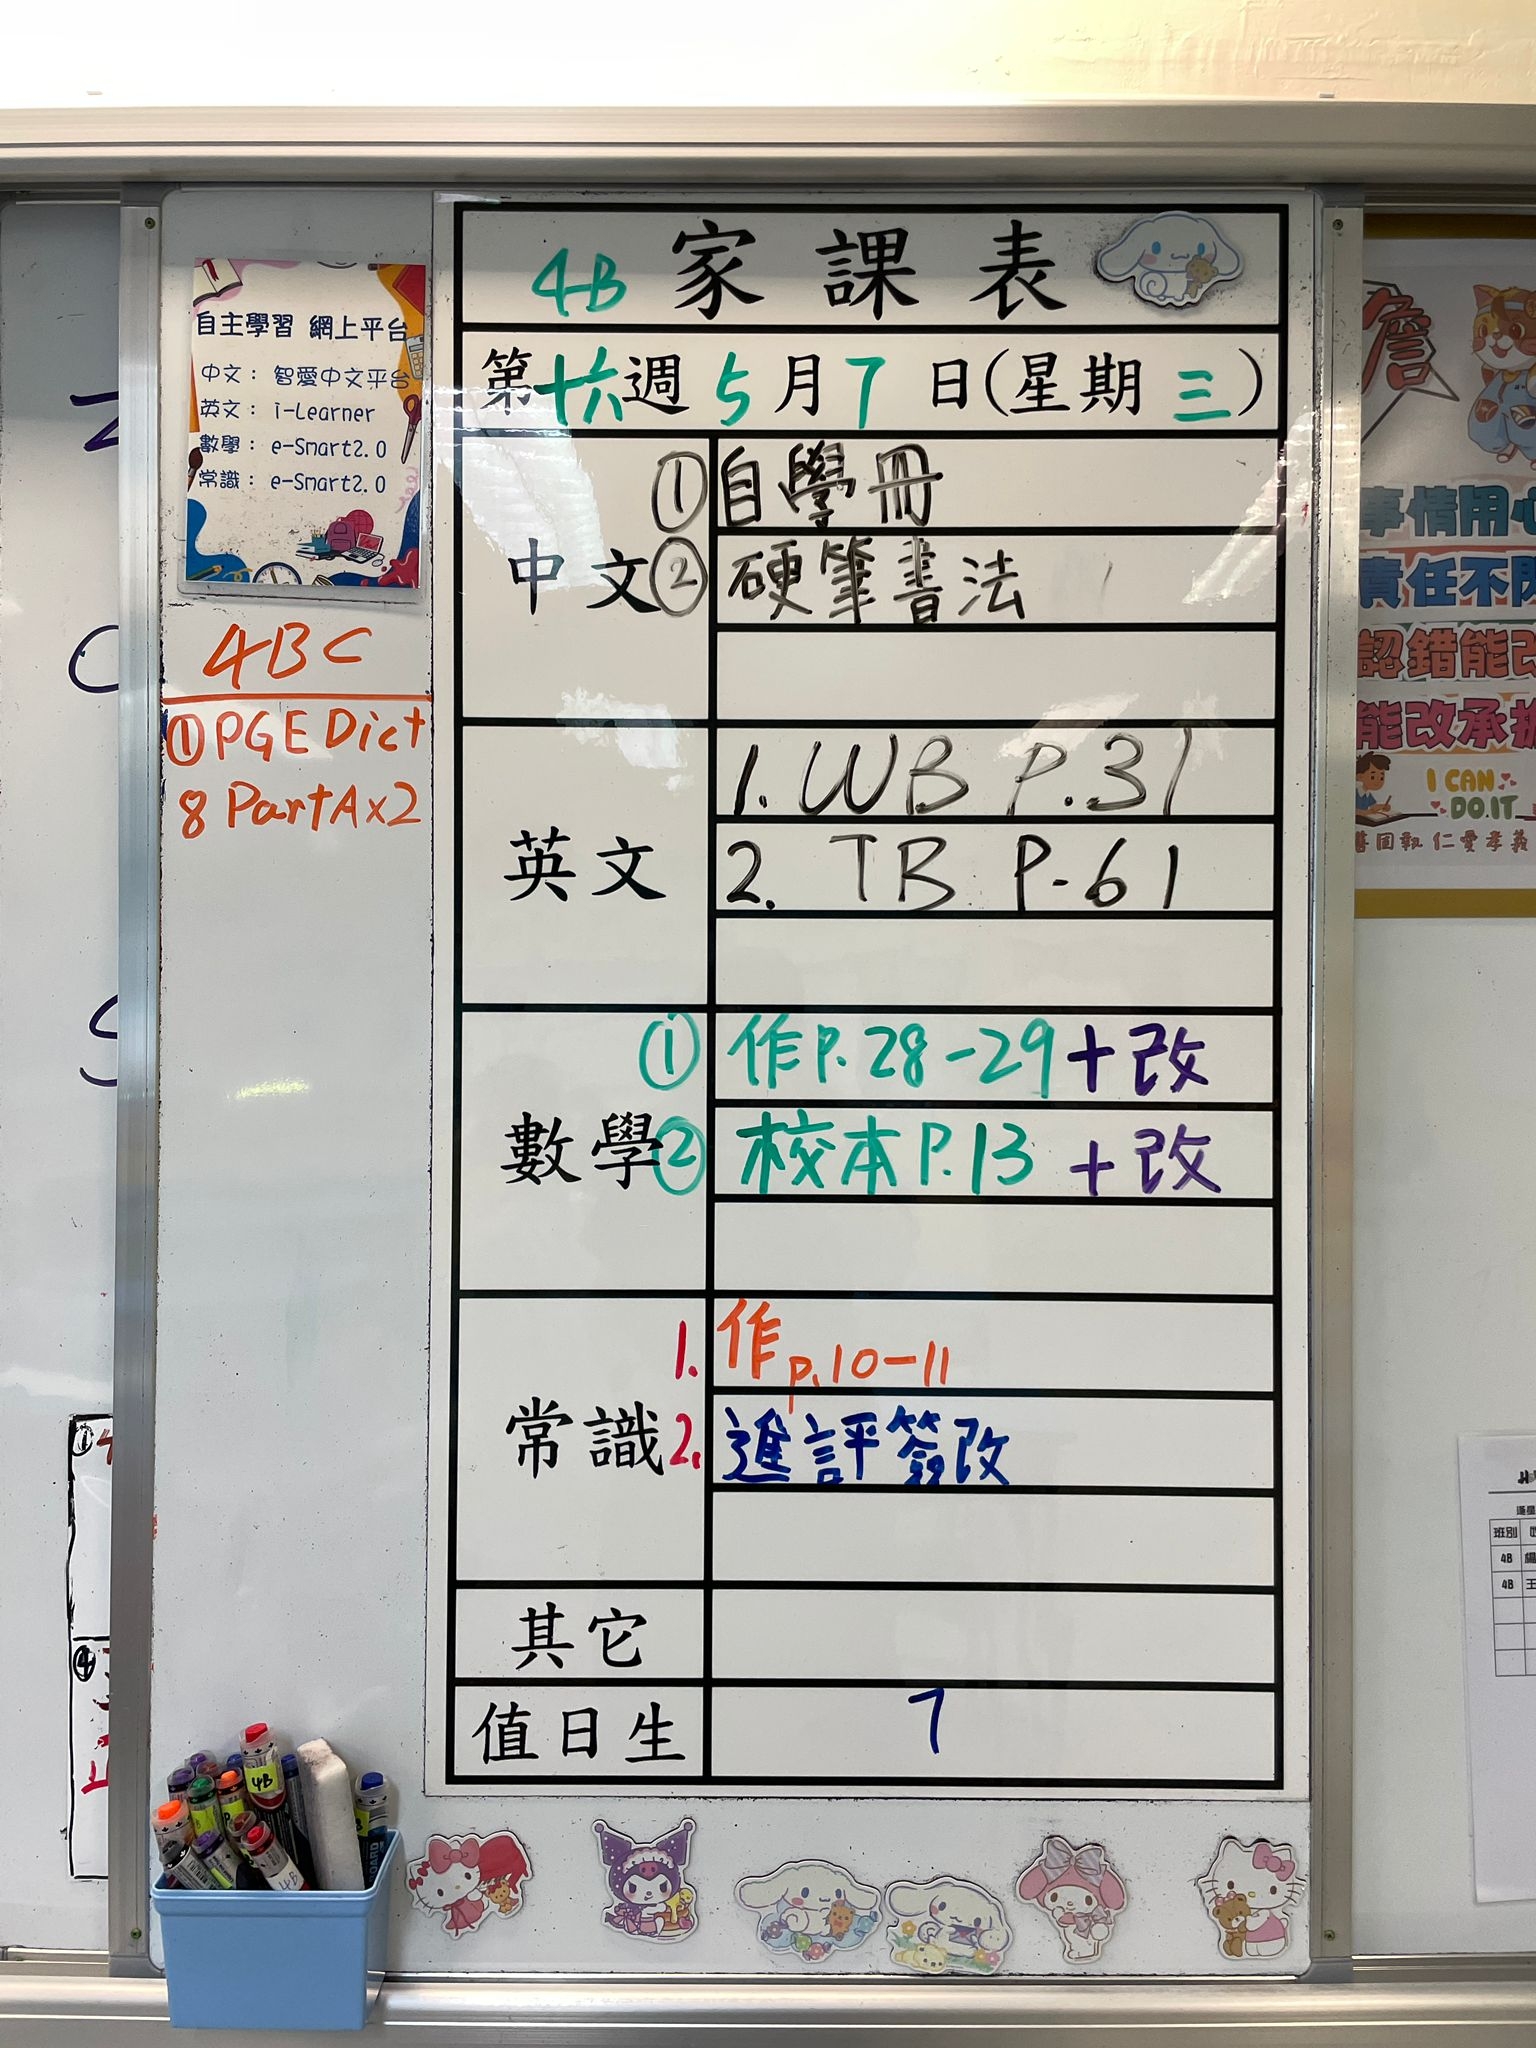 4B 家課表
第十六週 5月7日(星期三)
中文
① 自學冊
② 硬筆書法
英文
1. WB P.31
2. TB P.61
數學
① 作P.28-29+改
② 校本P.13 +改
常識
1. 作p.10-11
2. 進評簽改
其它
值日生 7
自主學習 網上平台
中文： 智愛中文平台
英文： i-Learner
數學： e-Smart2.0
常識： e-Smart2.0
4BC
① PGE Dict
8 PartA×2
事情用心
責任不
認錯能改
能改承擔
I CAN
DO IT
仁愛孝義
班別
4B
4B 王
4B
①
④